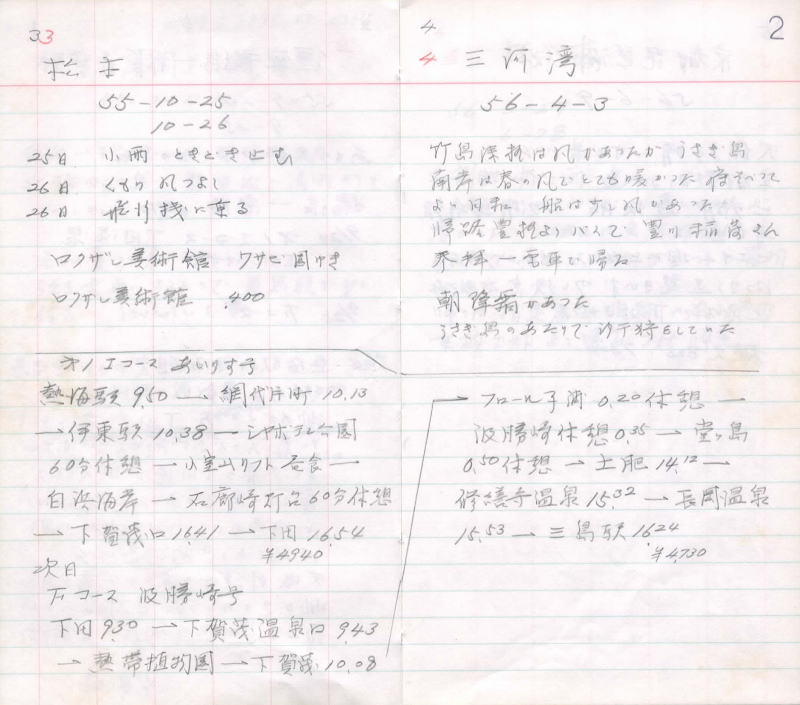 33
松本
55-10-25
10-26
25日 小雨 ときどき止む
26日 くもり 風つよし
26日 飛行機に乗る
ロクザン美術館 ワサビ園ゆき
ロクザン美術館 400
Iコース あいりす号
熱海駅 9.50 → 網代片町 10.13
→ 伊東駅 10.38 → シャボテン公園
60分休憩 → 小室山リフト 昼食 →
白浜海岸 → 石廊崎灯台 60分休憩
→ 下賀茂口 16.41 → 下田 16.54
¥4940
次日
下コース 波勝崎号
下田 9.30 → 下賀茂温泉口 9.43
→ 熱帯植物園 → 下賀茂 10.08
4
2
4 三河湾
56-4-3
竹島渫橋は風があったが うさぎ島
南岸は春の風でとても暖かった 存すべて
よい日和 船は少し風があった
帰路 豊橋よりバスで 豊川稲荷さん
参拝 一電車で帰る
朝 降霜があった
うさぎ島のあたりで 汐干狩をしていた
→ フロール子浦 0.20 休憩 →
波勝崎休憩 0.35 → 堂ヶ島
0.50 休憩 → 土肥 14.12 →
修繕寺温泉 15.32 → 長岡温泉
15.53 → 三島駅 16.24
¥4,730